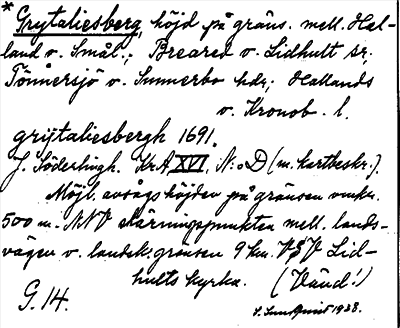 * Grytaliesberg, höjd på gräns. mell. Hal-
land o. Smål.; Breared o. Lidhult sr,
Tönnersjö o. Sunnerbo hdr; Hallands
o. Kronob. l.
grijtaliesbergh 1691.
J. Söderlingh. Kr.A, XVI, N:o D (m. kartbeskr.).
Möjl. avsågs höjden på gränsen omkr.
500 m. NNV skärningspunkten mell. lands-
vägen o. landsk.gränsen 9 km. VSV Lid-
hults kyrka. (Vänd!)
G. 14.
1938.